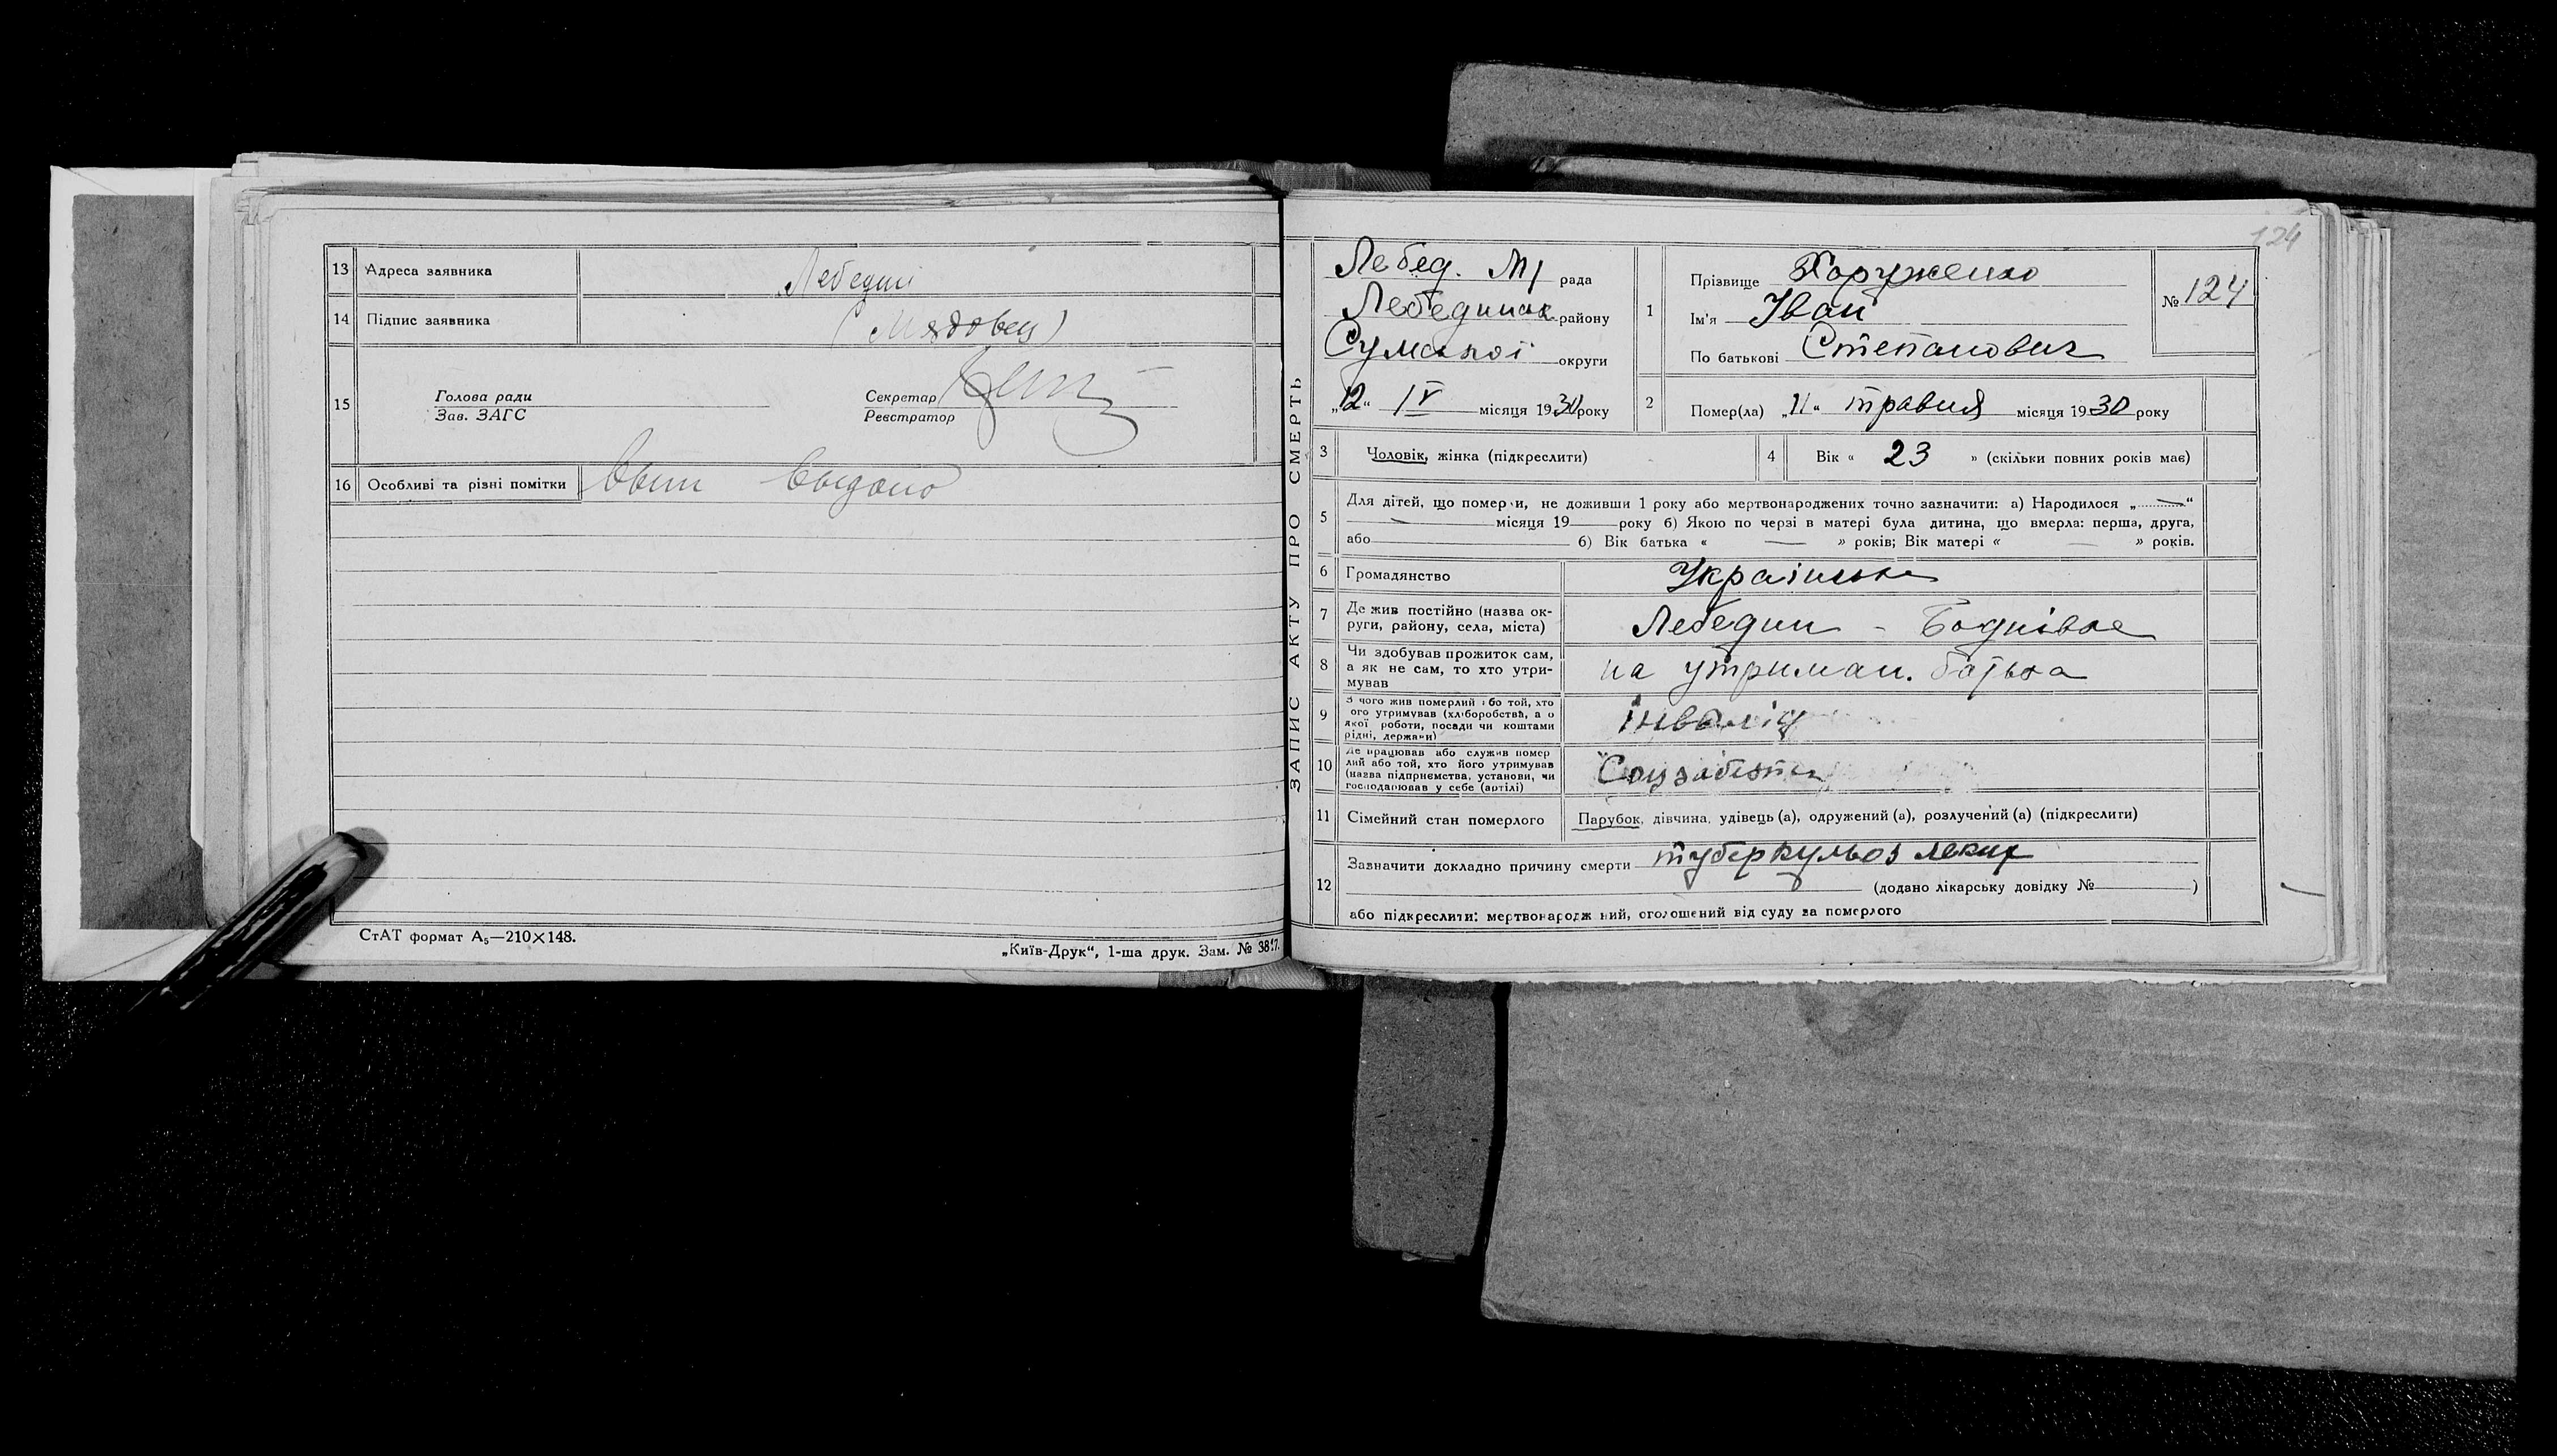 13 Адреса заявника Лебедин
14 Підпис заявника (Мядовец)
15 Голова ради
Зав. ЗАГС
Секретар
Реєстратор
16 Особливі та різні помітки выдано
СтАТ формат А₅—210×148.
„Київ-Друк“, 1-ша друк. Зам. № 3817.
124
ЗАПИС АКТУ ПРО СМЕРТЬ
Лебед. М/ рада
Лебединск району
Сумської округи
„12“ IV місяця 1930 року
1 Прізвище Хоруженко
Ім'я Іван
По батькові Степанович
№ 124
2 Помер(ла) „11“ травня місяця 1930 року
3 Чоловік, жінка (підкреслити)
4 Вік « 23 » (скільки повних років має)
5 Для дітей, що померли, не доживши 1 року або мертвонароджених точно зазначити: а) Народилося „—“
— місяця 19 року б) Якою по черзі в матері була дитина, що вмерла: перша, друга,
або б) Вік батька « — » років; Вік матері « — » років.
6 Громадянство Українська
7 Де жив постійно (назва ок-
руги, району, села, міста) Лебедин -
8 Чи здобував прожиток сам,
а як не сам, то хто утри-
мував на утриман. батька
9 З чого жив померлий або той, хто
ого утримував (хліборобства, а о
якої роботи, посади чи коштами
рідні, держави) інвалід
10 Де працював або служив помер
лий або той, хто його утримував
(назва підприємства, установи, чи
господарював у себе (артілі) Соцзабезпеч
11 Сімейний стан померлого Парубок, дівчина, удівець (а), одружений (а), розлучений (а) (підкреслити)
12 Зазначити докладно причину смерти туберкульоз легких
(додано лікарську довідку № )
або підкреслити: мертвонародж ний, оголошений від суду за померлого